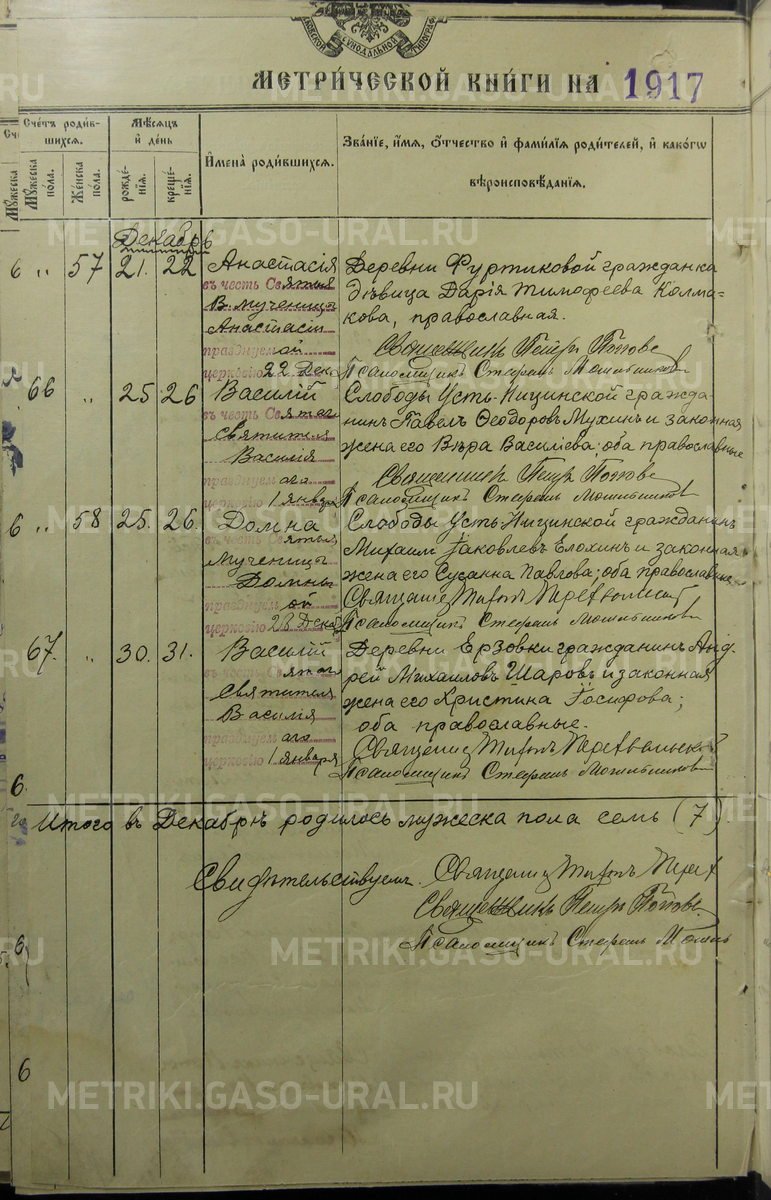 МЕТРИ́ЧЕСКОЙ КНИ́ГИ НА 1917
Сче́тъ роди́вшихся.
Мѣ́сяцъ и́ де́нь
И҆мена̀ роди́вшихся.
Зва́нїе, и҆́мя, о҆́тчество и҆ фами́лїя роди́телей, и҆ како́гѡ вѣ́роисповѣ́данїя.
Мꙋ́жеска по́ла.
Же́нска по́ла.
рожде́нїя.
креще́нїя.
Декабрь
„ 57 21. 22 Анастасія
въ честь Святыя
В. мученицы
Анастасіи
празднуемой
церковію 22 Дек.
Деревни Фуртиковой гражданка
дѣвица Дарія Тимофеева Колма-
кова, православная.
Священникъ Петръ Поповъ
Псаломщикъ Стефанъ
66 „ 25 26 Василій
въ честь Святаго
Святителя
Василія
празднуемаго
церковію 1 января
Слободы Усть-Ницинской гражда-
нинъ Павелъ Ѳеодоровъ Мухинъ и законная
жена его Вѣра Василіева; оба православные
Священникъ Петръ Поповъ
Псаломщикъ Стефанъ
„ 58 25. 26. Домна
въ честь Святыя
Мученицы
Домны
празднуемой
церковію 28 Декаб.
Слободы Усть-Ницинской гражданинъ
Михаилъ Іаковлевъ Елохинъ и законная
жена его Сусанна Павлова; оба православные
Священникъ
Псаломщикъ Стефанъ
67. „ 30. 31. Василій
въ честь Святаго
Святителя
Василія
празднуемаго
церковію 1 января
Деревни Ерзовки гражданинъ Анд-
рей Михаиловъ Шаровъ и законная
жена его Христина Іосифова;
оба православные.
Священникъ
Псаломщикъ Стефанъ
Итого въ Декабрѣ родилось мужеска пола семь (7).
Свидѣтельствуемъ: Священникъ
Священникъ Петръ Поповъ
Псаломщикъ Стефанъ
METRIKI.GASO-URAL.RU